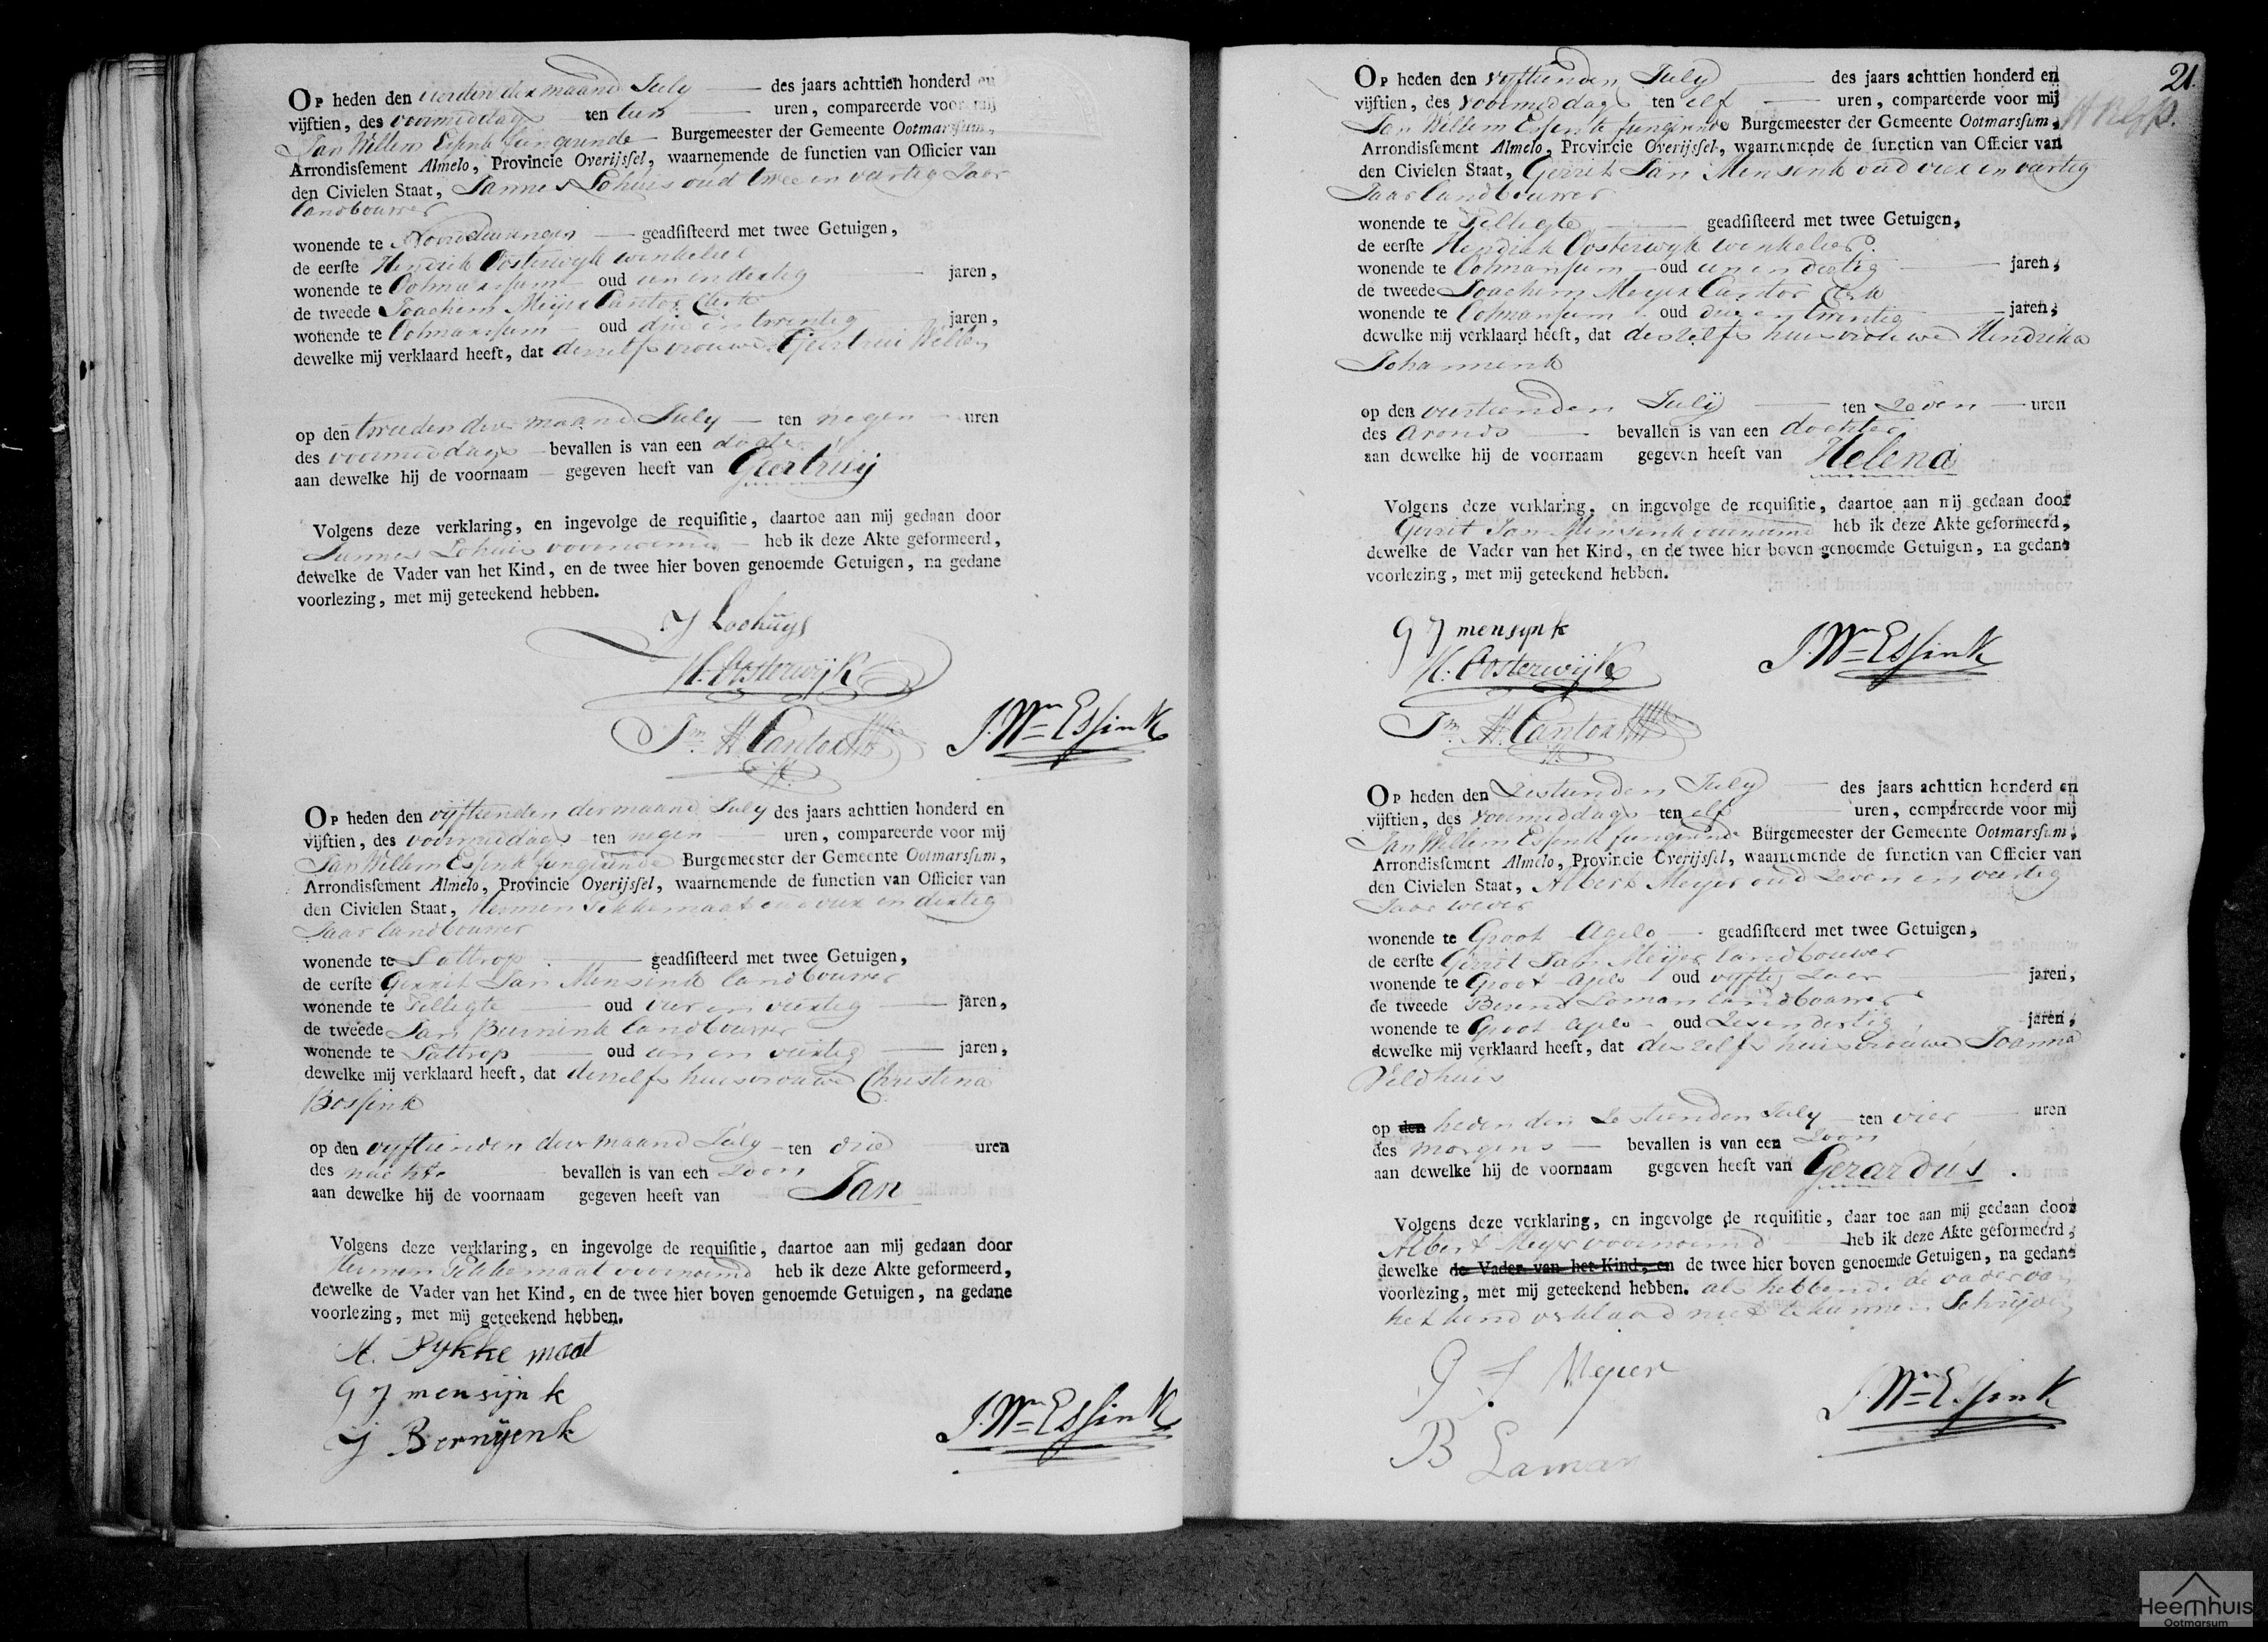 Op heden den vierden der maand July des jaars achttien honderd en
vijftien, des voormiddags ten tien uren, compareerde voor mij
Jan Willem Essink fungerende Burgemeester der Gemeente Ootmarssum,
Arrondissement Almelo, Provincie Overijssel, waarnemende de functien van Officier van
den Civielen Staat, Jannes Lohuis oud twee en vertig Jaar
landbouwer
wonende te geadsisteerd met twee Getuigen,
de eerste Hendrik Oosterwyk winkelier
wonende te Ootmarssum oud een en dertig jaren,
de tweede Joachem Meijer Cantor
wonende te Ootmarssum oud drie en twentig jaren,
dewelke mij verklaard heeft, dat deszelfs vrouwe
op den tweeden der maand July ten negen uren
des voormiddags bevallen is van een dogter
aan dewelke hij de voornaam gegeven heeft van Geertruij
Volgens deze verklaring, en ingevolge de requisitie, daartoe aan mij gedaan door
Jannes Lohuis voornoemd heb ik deze Akte geformeerd,
dewelke de Vader van het Kind, en de twee hier boven genoemde Getuigen, na gedane
voorlezing, met mij geteekend hebben.
J Loohuys
H. Oosterwijk
Jm M. Cantor
J. Wm Essink
Op heden den vyftienden der maand July des jaars achttien honderd en
vijftien, des voormiddags ten negen uren, compareerde voor mij
Jan Willem Essink fungerende Burgemeester der Gemeente Ootmarssum,
Arrondissement Almelo, Provincie Overijssel, waarnemende de functien van Officier van
den Civielen Staat, Hermen Pikkemaat oud vier en dertig
Jaar landbouwer
wonende te Lattrop geadsisteerd met twee Getuigen,
de eerste Gerrit Jan Mensink landbouwer
wonende te Tilligte oud vier en veertig jaren,
de tweede Jan Bernink landbouwer
wonende te Lattrop oud een en veertig jaren,
dewelke mij verklaard heeft, dat deszelfs huisvrouwe Christina
Bossink
op den vyftienden der maand July ten drie uren
des nachts bevallen is van een Zoon
aan dewelke hij de voornaam gegeven heeft van Jan
Volgens deze verklaring, en ingevolge de requisitie, daartoe aan mij gedaan door
Hermen Pikkemaat voornoemd heb ik deze Akte geformeerd,
dewelke de Vader van het Kind, en de twee hier boven genoemde Getuigen, na gedane
voorlezing, met mij geteekend hebben.
H. Pykke maat
G J mensijnk
J Bernijenk
J. Wm Essink
21.
Op heden den vyftienden July des jaars achttien honderd en
vijftien, des voormiddags ten elf uren, compareerde voor mij
Jan Willem Essink fungerende Burgemeester der Gemeente Ootmarssum,
Arrondissement Almelo, Provincie Overijssel, waarnemende de functien van Officier van
den Civielen Staat, Gerrit Jan Mensink oud vier en vertig
Jaar landbouwer
wonende te Tilligte geadsisteerd met twee Getuigen,
de eerste Hendrik Oosterwyk winkelier
wonende te Ootmarssum oud een en dertig jaren,
de tweede Joachem Meijer Cantor
wonende te Ootmarssum oud drie en twentig jaren,
dewelke mij verklaard heeft, dat deszelfs huisvrouwe Hendrika
Johannink
op den veertienden July ten Zeven uren
des Avonds bevallen is van een dochter
aan dewelke hij de voornaam gegeven heeft van Helena
Volgens deze verklaring, en ingevolge de requisitie, daartoe aan mij gedaan door
Gerrit Jan Mensink voornoemd heb ik deze Akte geformeerd,
dewelke de Vader van het Kind, en de twee hier boven genoemde Getuigen, na gedane
voorlezing, met mij geteekend hebben.
G J mensijnk
H. Oosterwijk
Jm M. Cantor
J. Wm Essink
Op heden den Zestienden July des jaars achttien honderd en
vijftien, des voormiddags ten elf uren, compareerde voor mij
Jan Willem Essink fungerende Burgemeester der Gemeente Ootmarssum,
Arrondissement Almelo, Provincie Overijssel, waarnemende de functien van Officier van
den Civielen Staat, Albert Meyer oud Zeven en veertig
Jaar wever
wonende te Groot Agelo geadsisteerd met twee Getuigen,
de eerste Gerrit Jan Meijer landbouwer
wonende te Groot Agelo oud vyftig Jaar jaren,
de tweede Berend Loman landbouwer
wonende te Groot Agelo oud Zes en dertig jaren,
dewelke mij verklaard heeft, dat deszelfs huisvrouwe Joanna
Veldhuis
op den heden den Zestienden July ten vier uren
des morgens bevallen is van een Zoon
aan dewelke hij de voornaam gegeven heeft van Gerardus.
Volgens deze verklaring, en ingevolge de requisitie, daar toe aan mij gedaan door
Albert Meyer voornoemd heb ik deze Akte geformeerd,
dewelke de Vader van het Kind, en de twee hier boven genoemde Getuigen, na gedane
voorlezing, met mij geteekend hebben. als hebbende de vader van
het kend verklaard niet te kunnen Schrijven
G J Meijer
B Laman
J. Wm Essink
Heemhuis
Ootmarsum